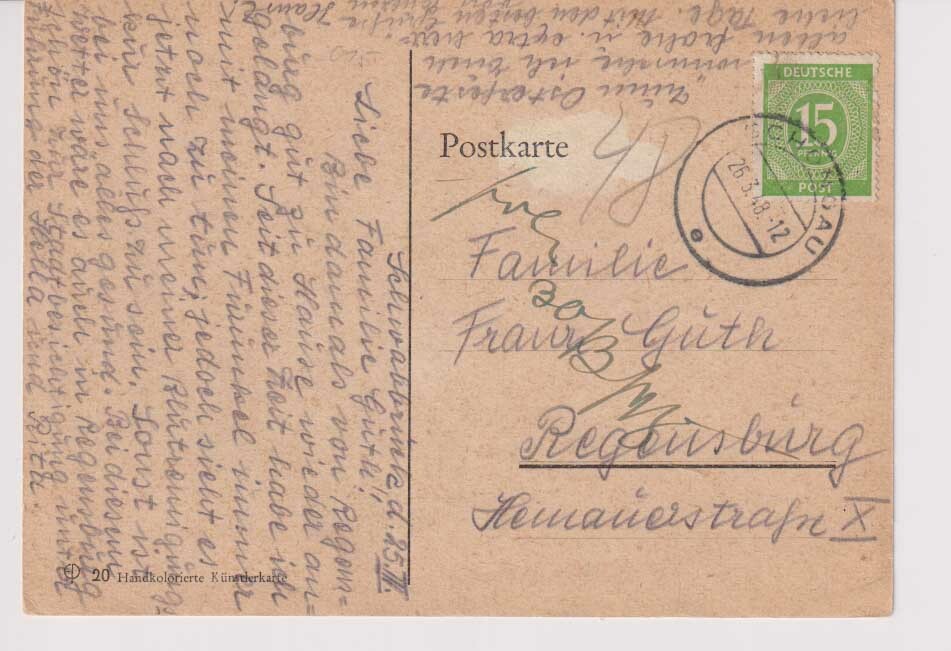 Schwabbruck, d. 25. III.
Liebe Familie Guth!
Bin damals von Regens=
burg gut zu Hause wieder an=
gelangt. Seit dieser Zeit habe ich
mit meinen Furunkel immer
noch zu tun, jedoch sieht es
jetzt nach meiner Blutreinigungs=
kur Schluß zu sein. Sonst ist
bei uns alles gesund. Bei diesem
Wetter wäre es auch in Regensburg
schön zur Stadtbesichtigung unter
Führung der Hella und Rita.
Zum Osterfeste
wünsche ich Euch
allen frohe u. extra
Tage. Mit den besten Grüßen
Postkarte
DEUTSCHE
15
PFENNIG
POST
GAU
26.3.48.-12
e
Familie
Franz Guth
Regensburg
Hemauerstraße X
20 Handkolorierte Künstlerkarte